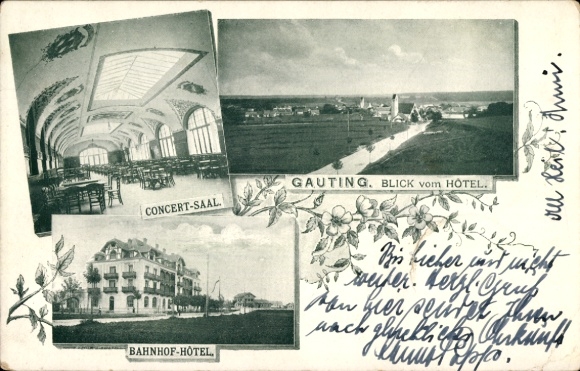 CONCERT-SAAL.
GAUTING. BLICK vom HÔTEL.
BAHNHOF-HÔTEL.
Bis hieher und nicht
weiter. Herzl. Gruß
von hier sendet Ihnen
nach glücklicher Ankunft